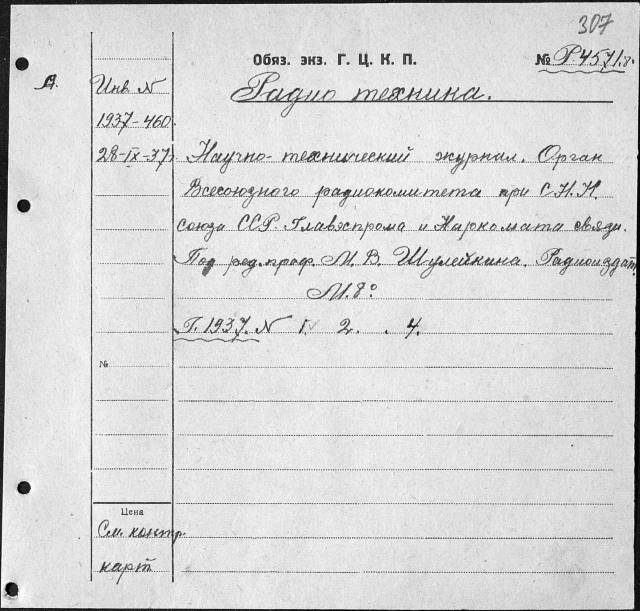 307
Обяз. экз. Г. Ц. К. П.
№ Р.4571.8.
А.
Инв. N
Радио техника.
1937-460.
28-IX-37
Научно-технический журнал. Орган
Всесоюзного радиокомитета при С.Н.К.
союза ССР. Главэспрома и Наркомата связи.
Под ред. проф. М. В. Шулейкина. Радиоиздат.
М. 8°
Г. 1937. N 1. 2. . 4.
№
Цена
См. контр.
карт.